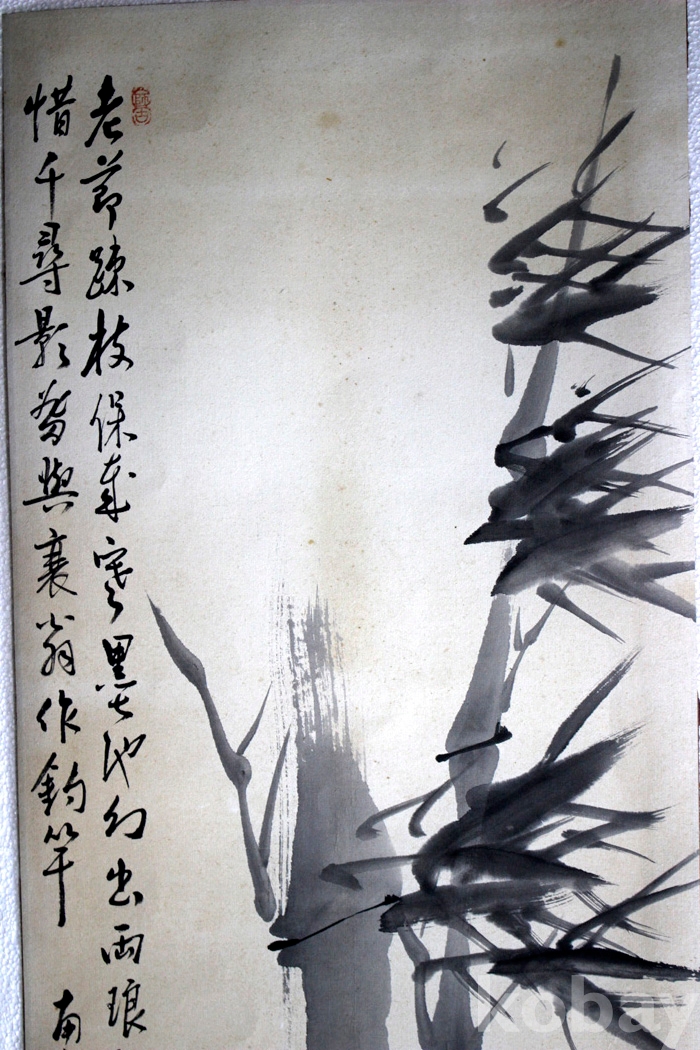 老節疎枝保歲寒墨池幻出兩琅
惜千尋影留與衰翁作釣竿 南
kobay